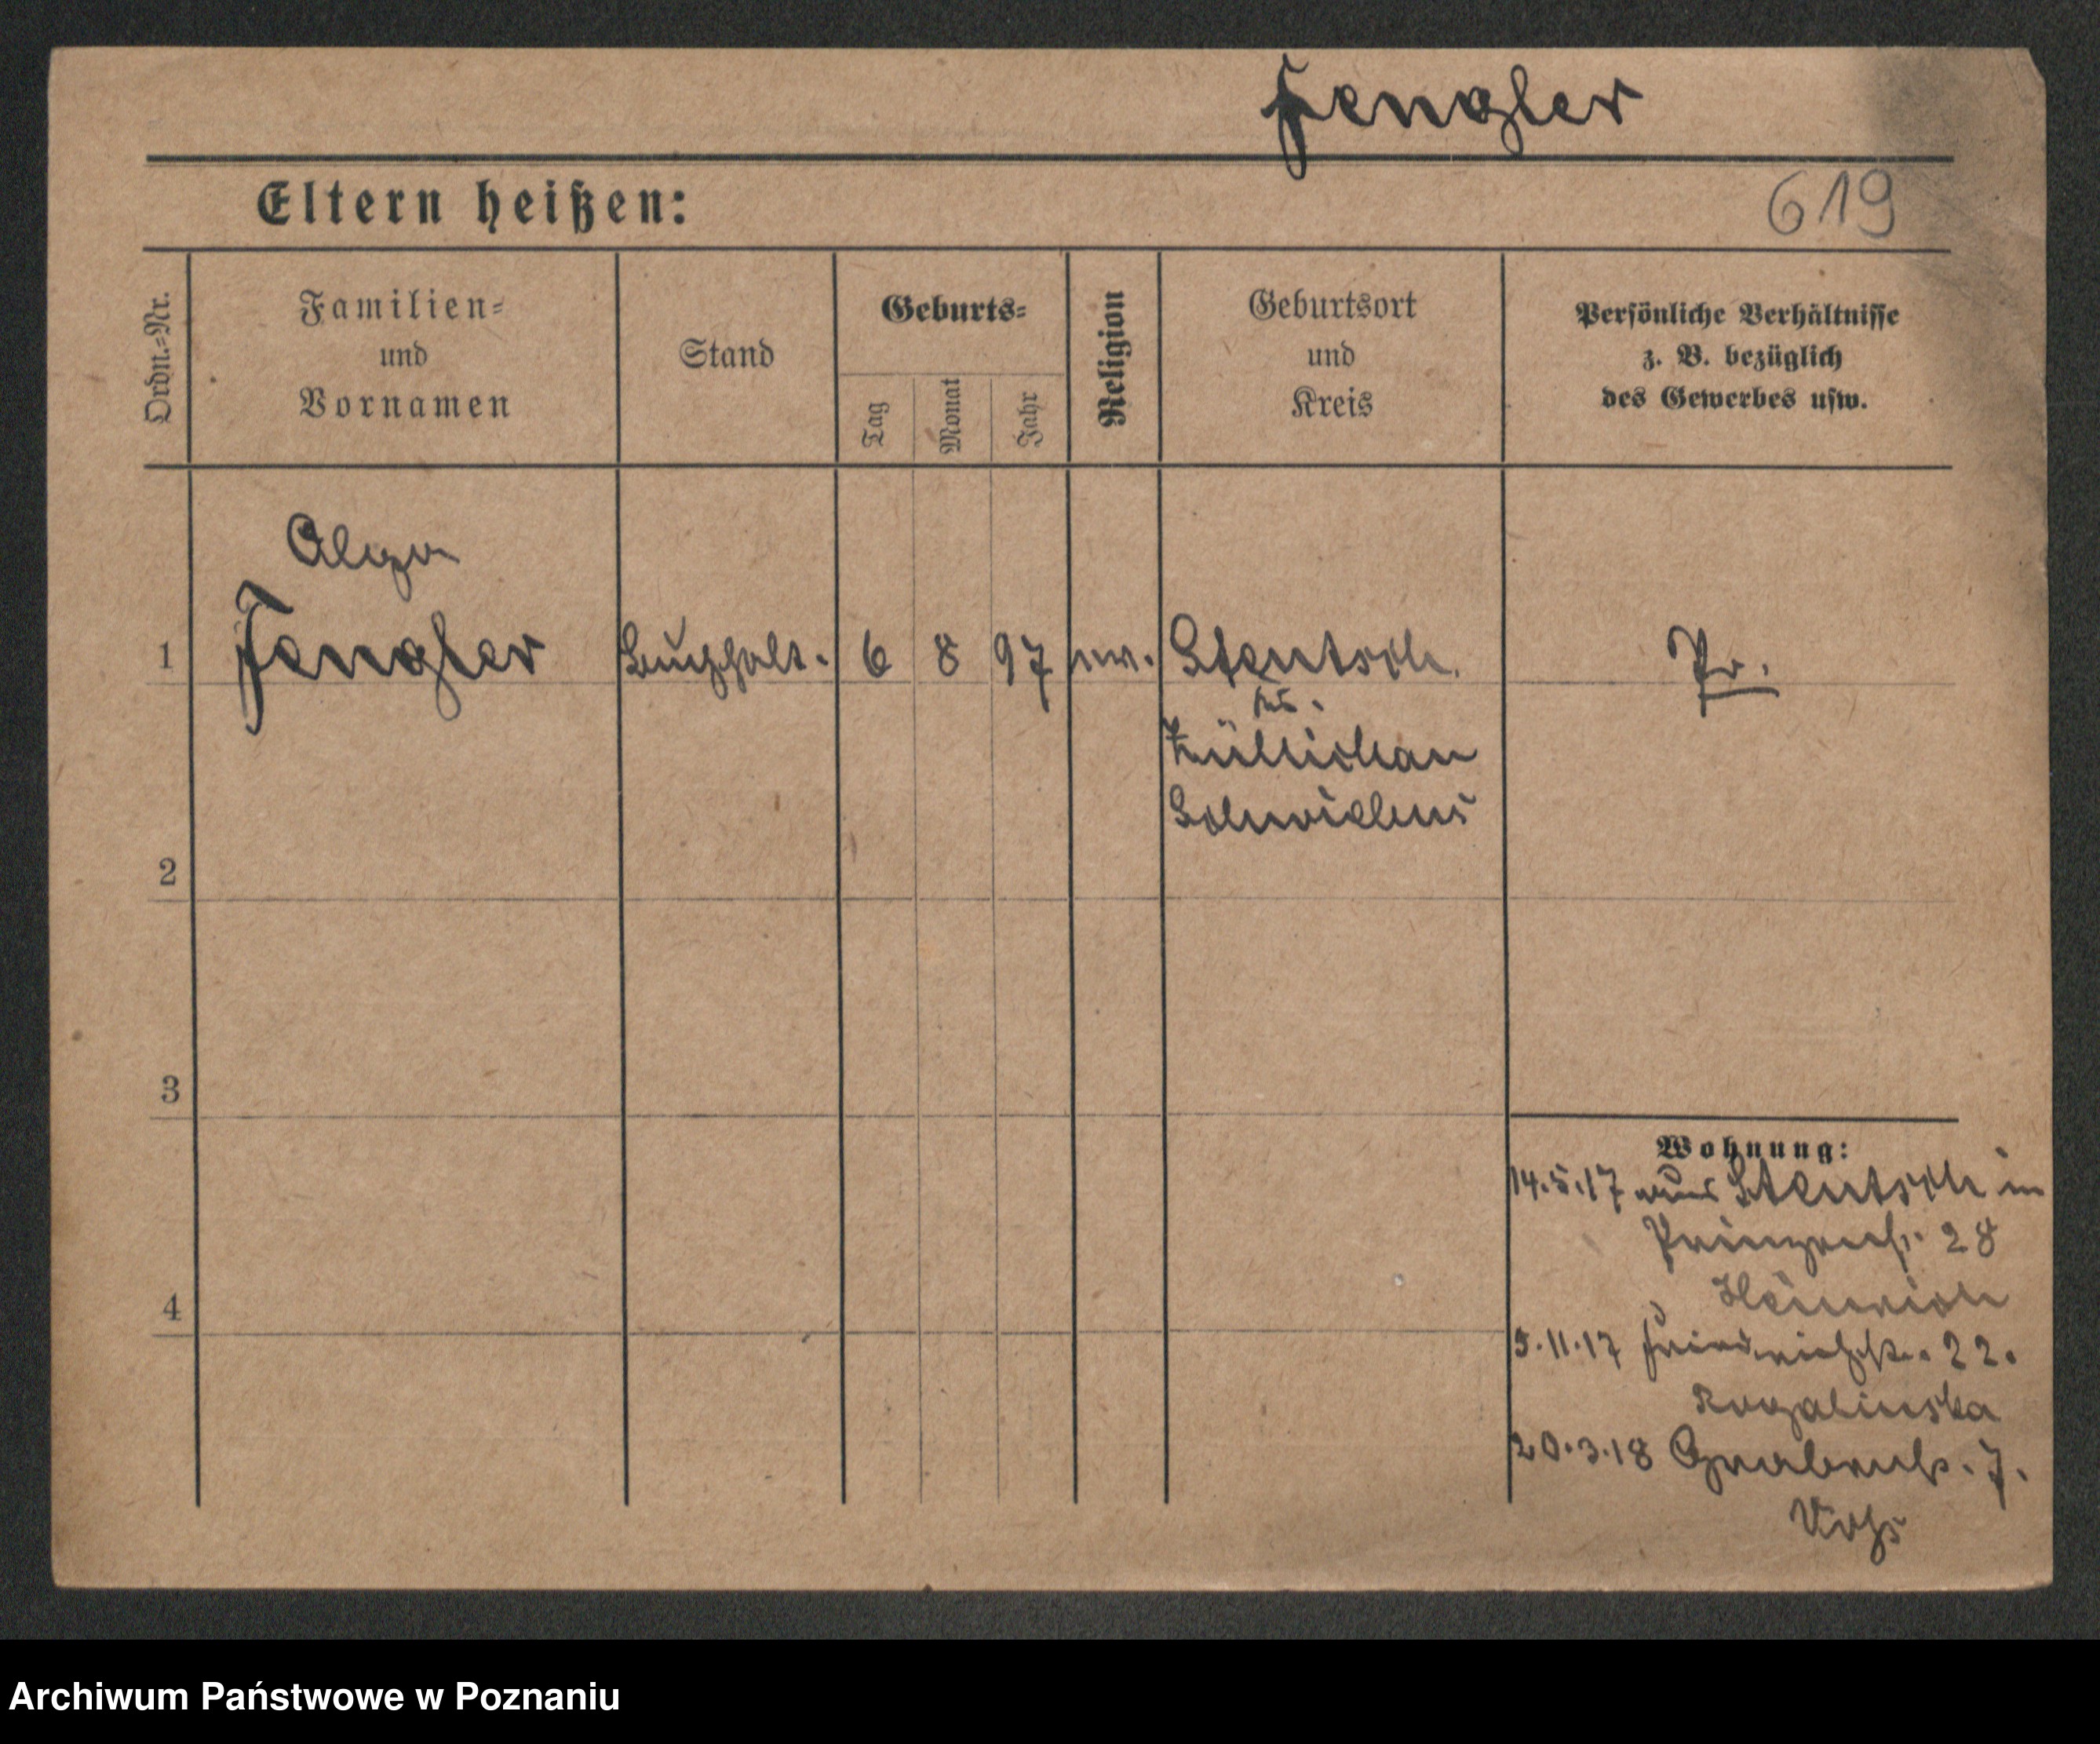 Fengler
Eltern heißen:
619
Ordn.-Nr.
Familien- und Vornamen
Stand
Geburts-
Tag
Monat
Jahr
Religion
Geburtsort und Kreis
Persönliche Verhältnisse
z. B. bezüglich
des Gewerbes usw.
Olga
1 Fengler Buchhalt. 6 8 97 ev. Stentsch Pr.
Krs.
Züllichau
Schwiebus
2
3
Wohnung:
14.5.17 aus Stentsch in
Prinzenstr. 28
Heinrich
4
5.11.17 Friedrichstr. 22.
Rogalinska
20.3.18 Grabenstr. 7.
Archiwum Państwowe w Poznaniu